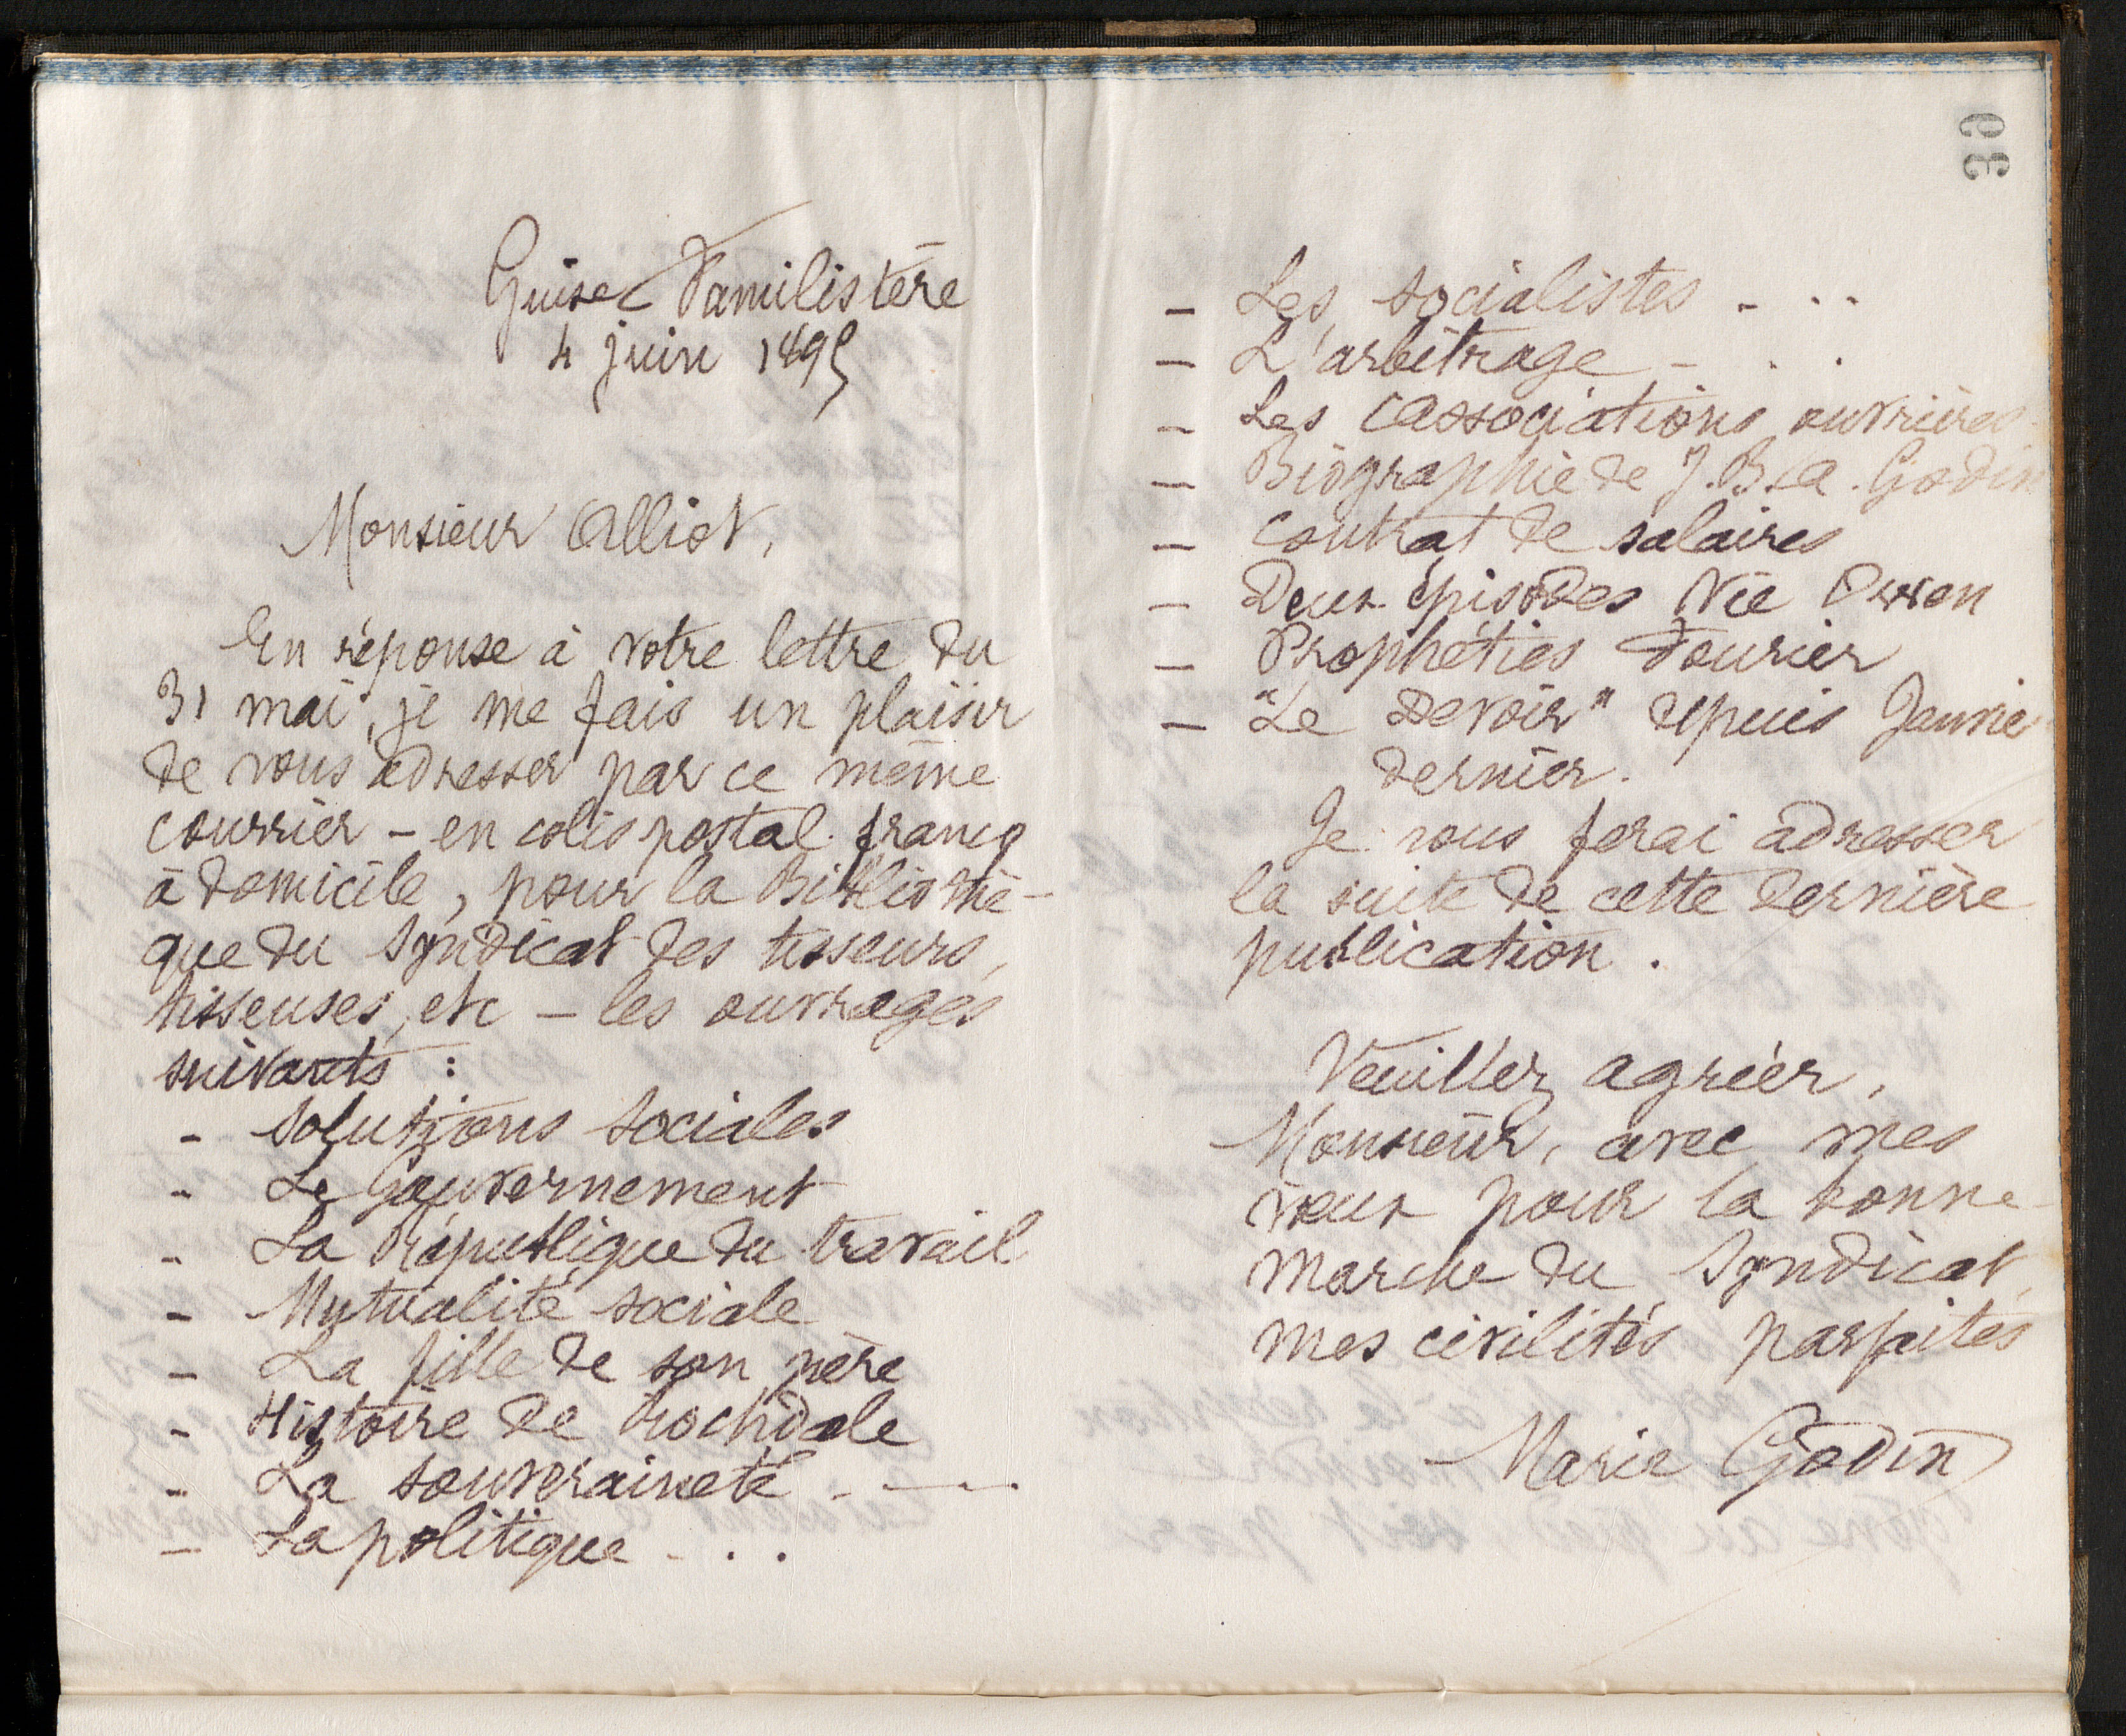 Guise Familistère
4 juin 1895
Monsieur Alliot,
En réponse à votre lettre du
31 mai, je me fais un plaisir
de vous adresser par ce même
courrier – en colis postal franco
à domicile, pour la Bibliothè-
que du Syndicat des tisseurs,
tisseuses, etc – les ouvrages
suivants :
- Solutions sociales
- Le Gouvernement
- La République du travail
- Mutualité sociale
- La fille de son père
- Histoire de Rochdale
- La souveraineté - —
- La politique - . .
- Les socialistes - . .
- L'arbitrage - . .
- Les Associations ouvrières
- Biographie de J. B. A. Godin
- Contrat de salaires
- Deux épisodes Vie Owen
- Prophéties Fourier
- "Le Devoir" depuis Janvier
dernier.
Je vous ferai adresser
la suite de cette dernière
publication.
Veuillez agréer,
Monsieur, avec mes
vœux pour la bonne
marche du Syndicat,
mes civilités parfaites
Marie Godin
39